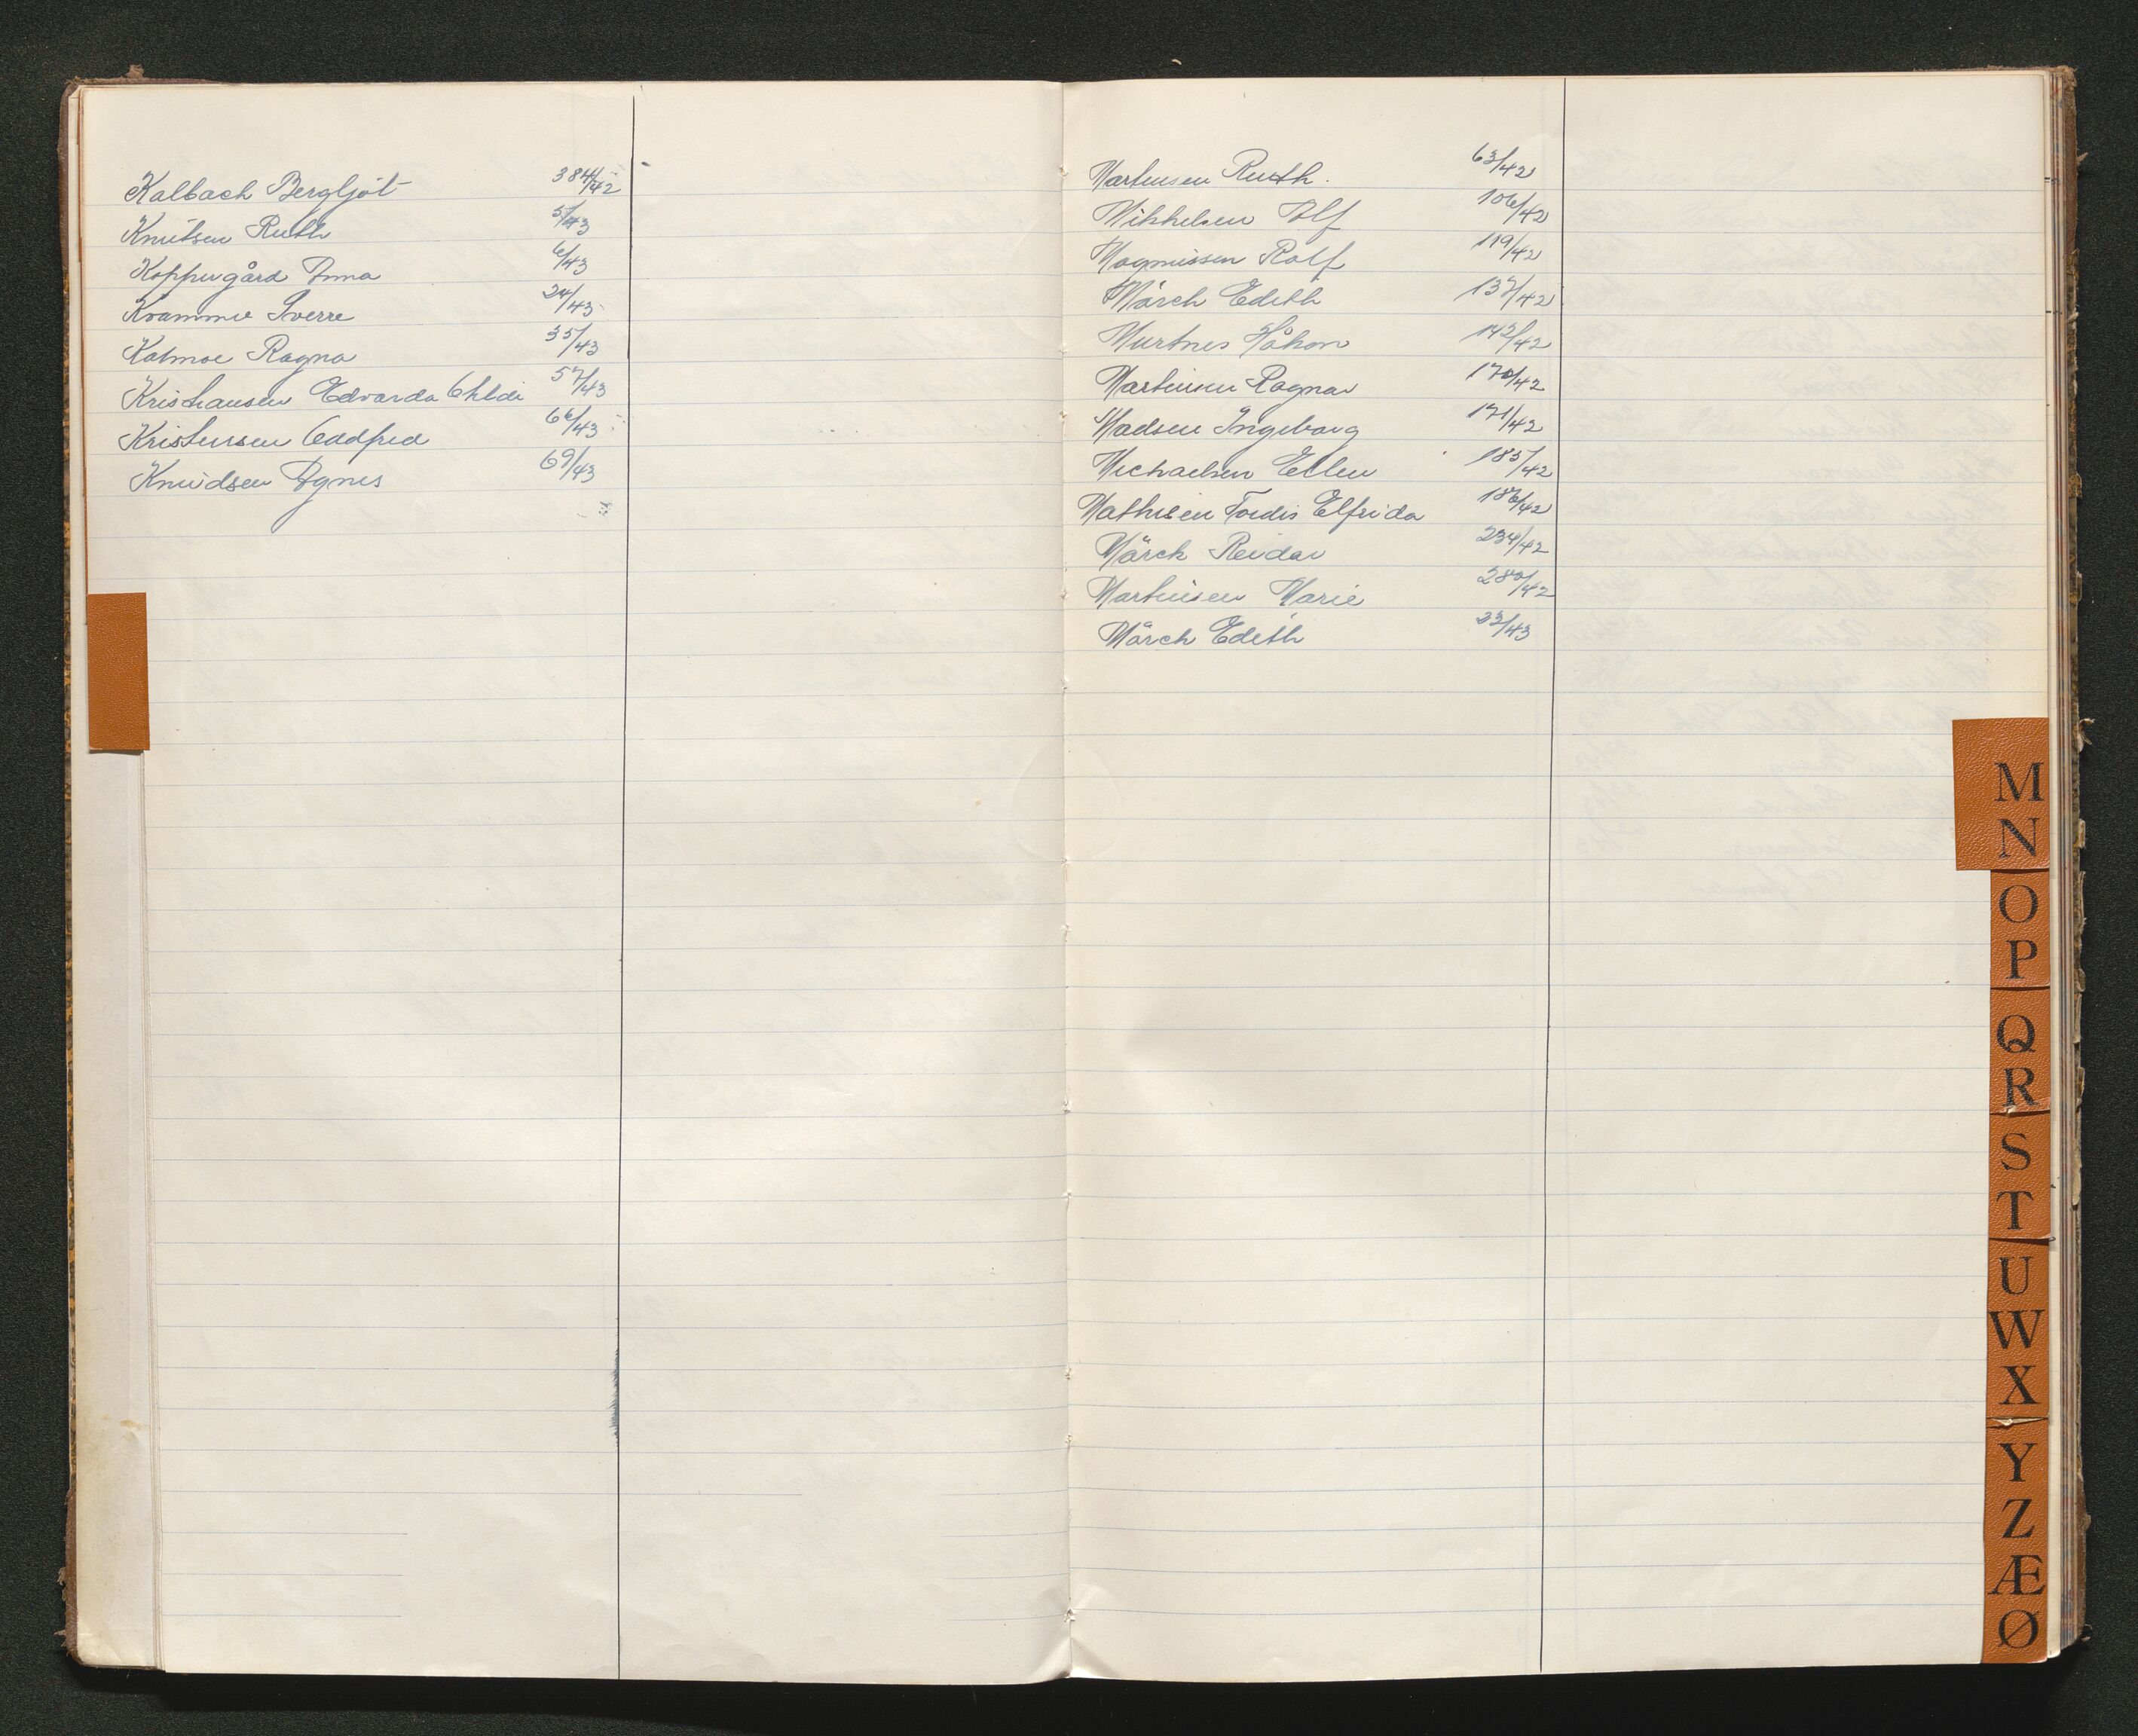 Kalbach Bergljót 384/42
Knutsen Ruth 5/43
Koppergård Anna 6/43
Kvamme Sverre 24/43
Katmoe Ragna 35/43
Kristiansen Edvarda 57/43
Kristensen Oddfred 66/43
Knudsen Agnes 69/43
Martensen Ruth. 63/42
Mikkelsen Alf 106/42
Magnussen Rolf 119/42
Märch Edith 137/42
Murtnes Håkon 142/42
Martinsen Ragnar 170/42
Madsen Ingeborg 171/42
Michaelsen Ellen 185/42
Mathisen Tordis Elfrida 186/42
Märch Reidar 234/42
Martinsen Marie 280/42
Märch Edith 23/43
M
N
O
P
Q
R
S
T
U
W
X
Y
Z
Æ
Ø